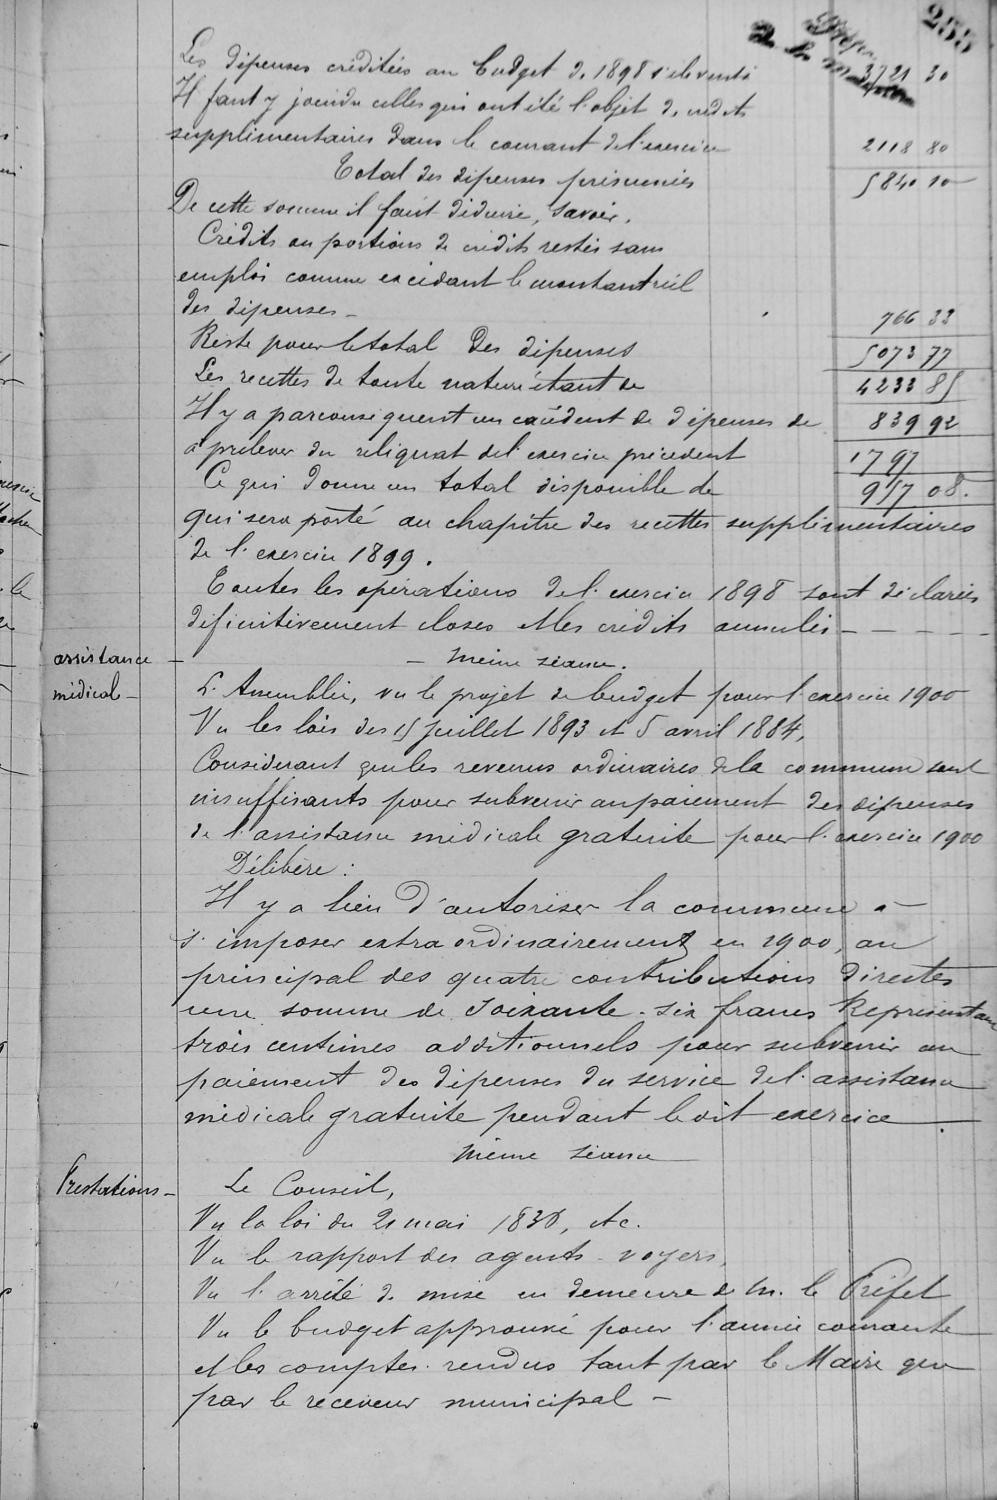 255
Les dépenses créditées au budget de 1898 s'élevent à 3721 30
Il faut y joindre celles qui ont été l'objet de crédits
supplémentaires dans le courant de l'exercice 2118 80
Total des dépenses présumées 5840 10
De cette somme il faut déduire, savoir.
Crédits ou portions de crédits restés sans
emploi comme excédant le montant réel
des dépenses - 766 33
Reste pour le total des dépenses 5073 77
Les recettes de toute nature étant de 4233 85
Il y a par conséquent un excédent de dépenses de 839 92
à prélever du reliquat de l'exercice précédent 1797
Ce qui donne un total disponible de 957 08.
qui sera porté au chapître des recettes supplémentaires
de l'exercice 1899.
Toutes les opérations de l'exercice 1898 sont déclarées
définitivement closes et les crédits annulés - - - - -
même séance.
assistance
médicale -
L'Assemblée, vu le projet de budget pour l'exercice 1900
Vu les lois des 15 juillet 1893 et 5 avril 1884,
Considérant que les revenus ordinaires de la commune sont
insuffisants pour subvenir au paiement des dépenses
de l'assistance médicale gratuite pour l'exercice 1900
Délibère :
Il y a lieu d'autoriser la commune à
s'imposer extraordinairement en 1900, au
principal des quatre contributions directes
une somme de soixante-six francs Représentant
trois centimes additionnels pour subvenir au
paiement des dépenses du service de l'assistance
médicale gratuite pendant le dit exercice.
même séance
Prestations -
Le Conseil,
Vu la loi du 21 mai 1836, etc.
Vu le rapport des agents-voyers,
Vu l'arrêté de mise en demeure de M. le Préfet
Vu le budget approuvé pour l'année courante
et les comptes-rendus tant par le Maire que
par le receveur municipal -